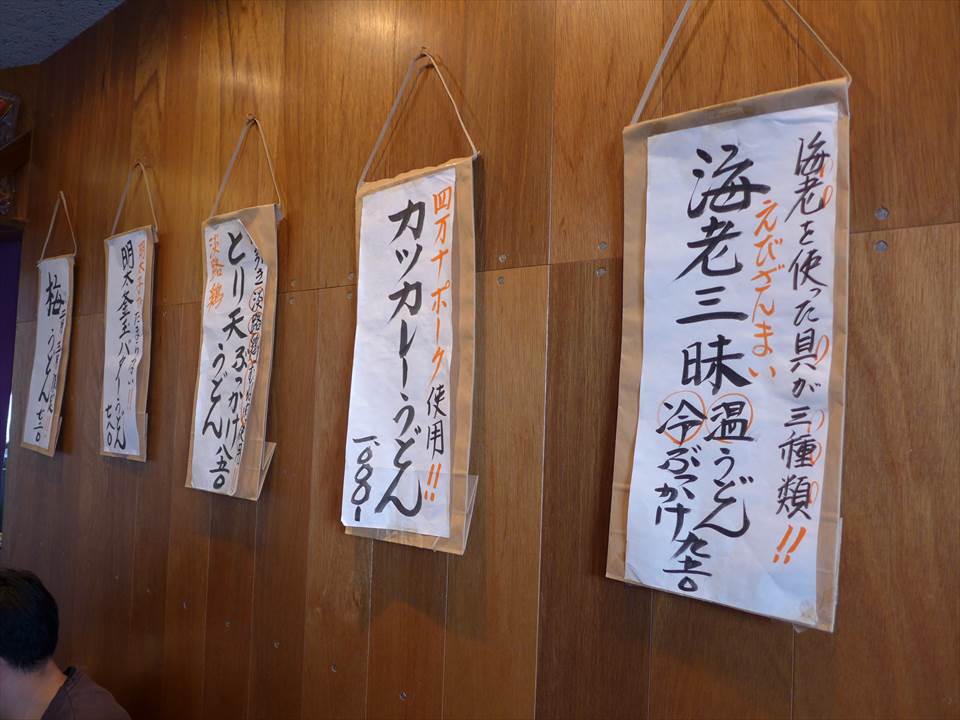 海老を使った具が三種類!!
えびざんまい
海老三昧
温うどん
冷ぶっかけ 九五〇
四万十ポーク使用!!
カツカレーうどん
一、〇〇〇-
とり天ぶっかけうどん 八五〇
淡路鶏
明太釜玉バターうどん
七八〇
梅うどん